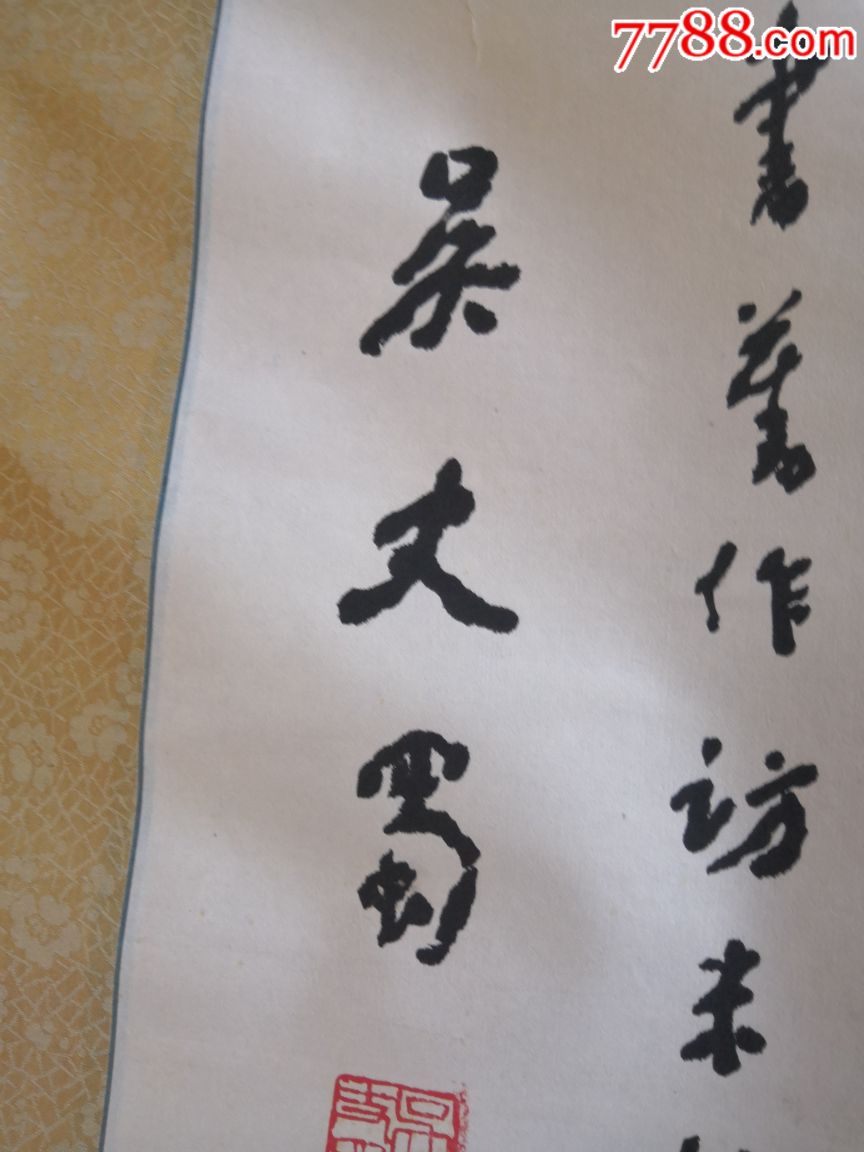 7788.com
書舊作訪米
吳丈蜀